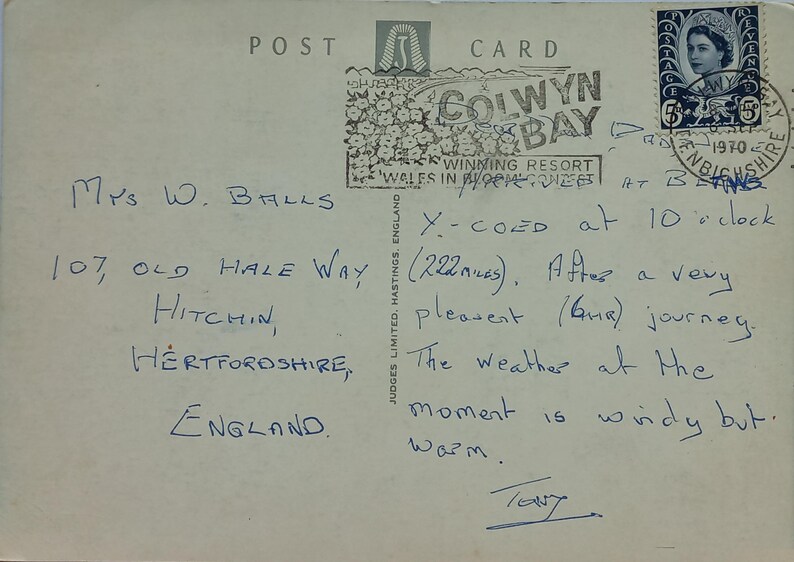 POST CARD
COLWYN
BAY
WINNING RESORT
WALES IN BLOOM CONTEST
POSTAGE REVENUE
5D 5D
1970
DENBIGHSHIRE
Mrs W. BALLS
107, OLD HALE WAY,
HITCHIN,
HERTFORDSHIRE,
ENGLAND.
JUDGES LIMITED, HASTINGS, ENGLAND
Dear DAD,
ARRIVED AT BETWS
Y-COED at 10 o'clock
(222 MILES). After a very
pleasent (6HR) journey.
The weather at the
moment is windy but
warm.
Tony